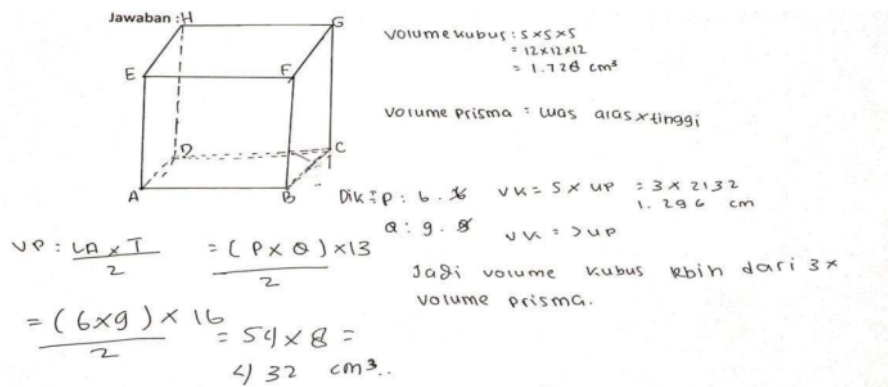 Jawaban :
H G
E F
D C
A B
Volume kubus : s x s x s
= 12x12x12
= 1.728 cm³
Volume prisma = luas alas x tinggi
Dik : P : 6.
Q : 9.
VK = 5 x VP = 3 x 2132
1.296 cm
VK = > VP
Jadi volume kubus lebih dari 3x
volume prisma.
VP : LA x T / 2 = (P x Q) x 13 / 2
= (6x9) x 16 / 2 = 54 x 8 =
432 cm³..